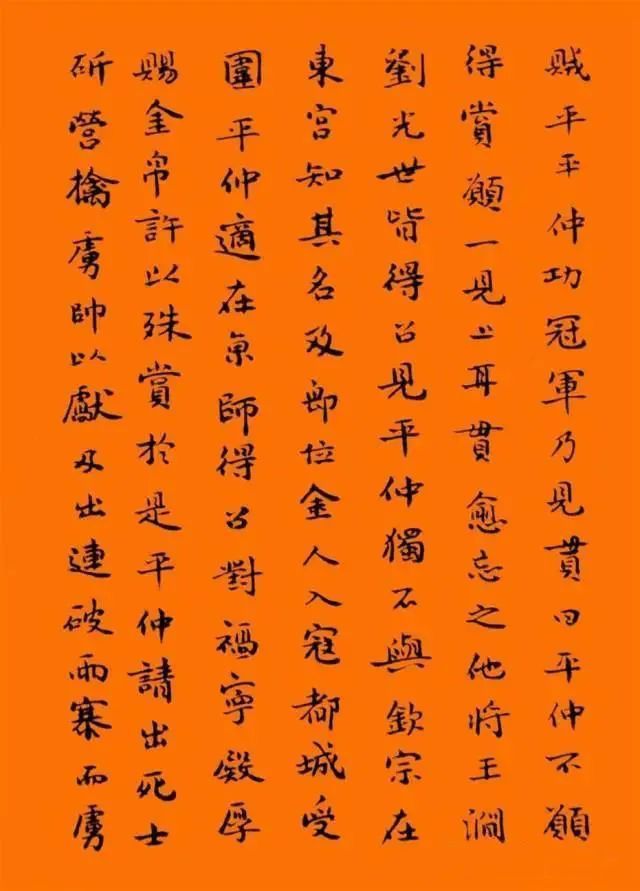 賊平平仲功冠軍乃見貫曰平仲不願
得賞願一見上耳貫愈忌之他將王淵
劉光世皆得召見平仲獨不與欽宗在
東宮知其名及即位金人入寇都城受
圍平仲適在京師得召對福寧殿厚
賜金帛許以殊賞於是平仲請出死士
斫營擒虜帥以獻及出連破兩寨而虜